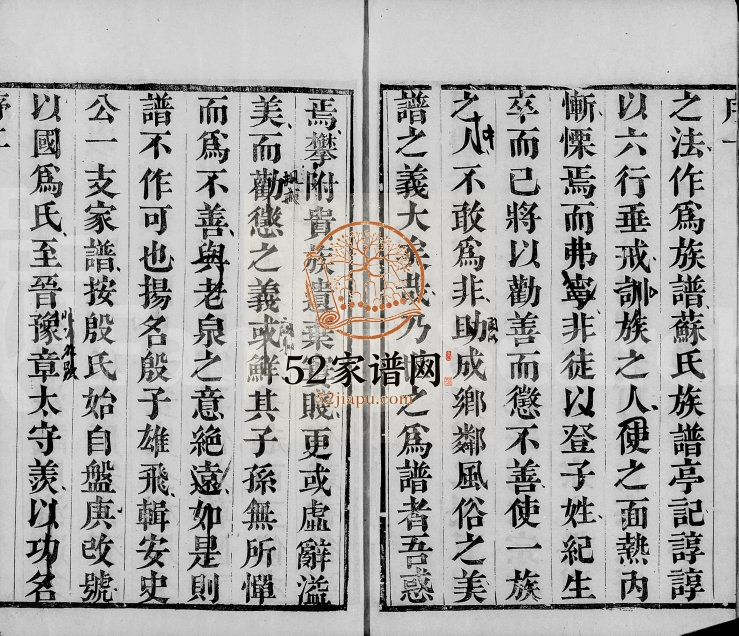 之法作爲族譜蘇氏族譜亭記諄諄
以六行垂戒訓族之人使之面熱内
慚慄焉而弗寧非徒以登子姓紀生
卒而已將以勸善而懲不善使一族
之人不敢爲非助成鄉鄰風俗之美
譜之義大矣哉乃之爲譜者吾惑
焉攀附貴族遺棄賤更或虛辭溢
美而勸懲之義或鮮其子孫無所憚
而爲不善與老泉之意絶遠如是則
譜不作可也揚名殷子雄飛輯安史
公一支家譜按殷氏始自盤庚改號
以國爲氏至晉豫章太守羨以功名
序二
52家谱网
52jiapu.com